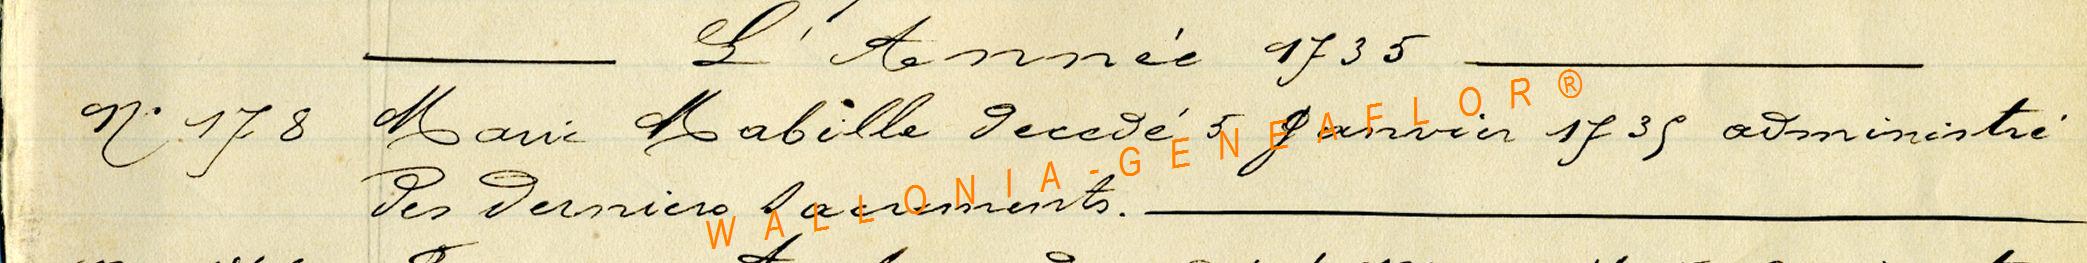 L'Année 1735
N° 178 Marie Mabille decedé 5 Janvier 1735 administré
des derniers Sacrements.
WALLONIA-GENEAFLOR®